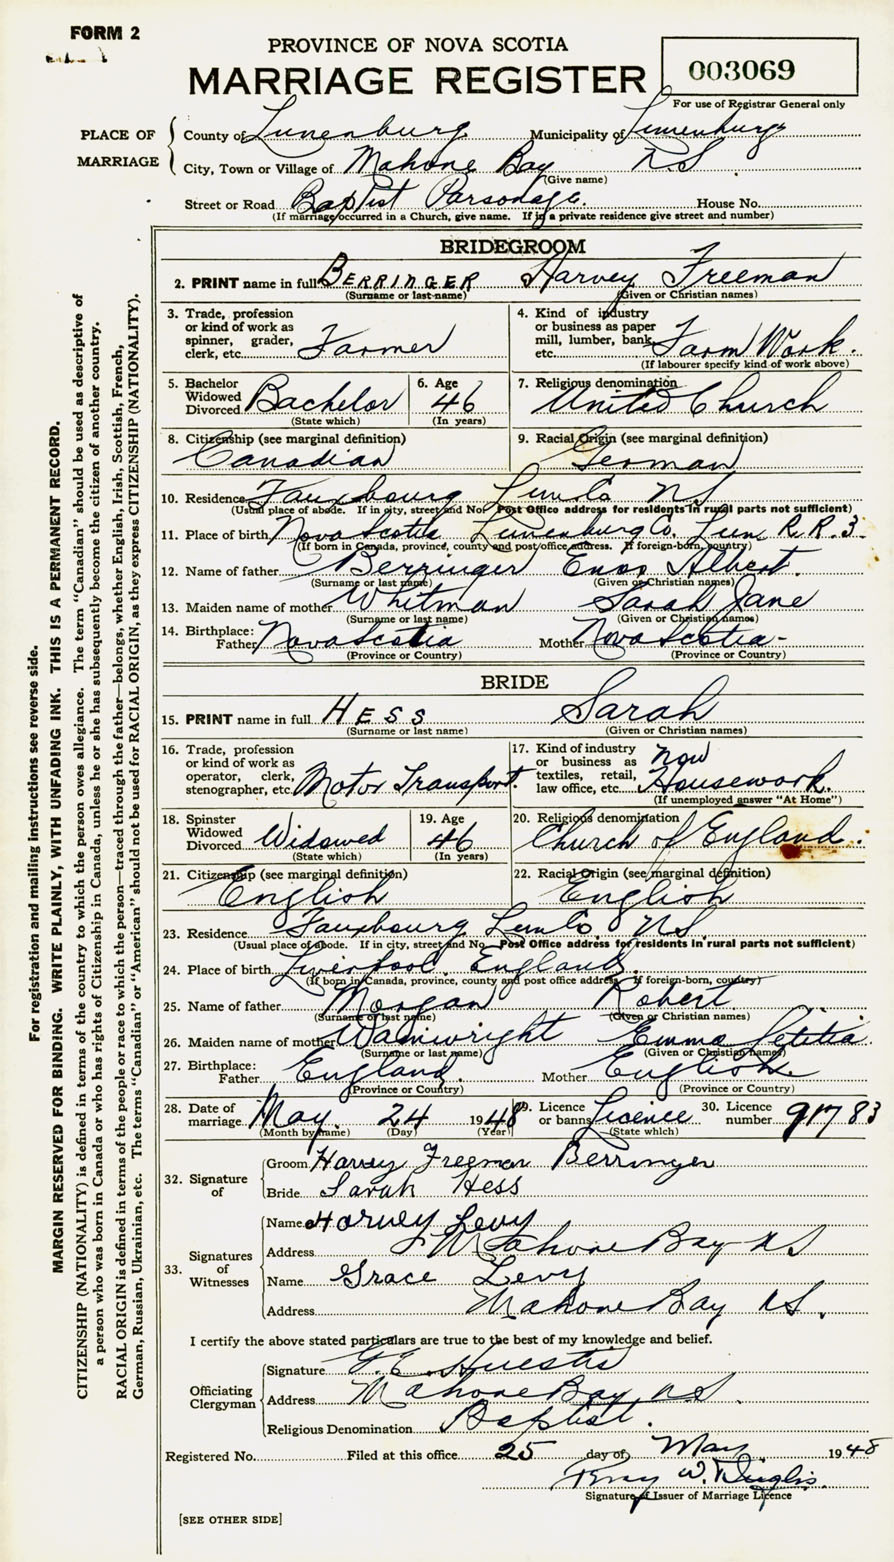 FORM 2
PROVINCE OF NOVA SCOTIA
MARRIAGE REGISTER
003069
For use of Registrar General only
PLACE OF MARRIAGE
County of Lunenburg Municipality of Lunenburg
City, Town or Village of Mahone Bay N.S
(Give name)
Street or Road Baptist Parsonage. House No.
(If marriage occurred in a Church, give name. If in a private residence give street and number)
BRIDEGROOM
2. PRINT name in full BERRINGER Harvey Freeman
(Surname or last name) (Given or Christian names)
3. Trade, profession or kind of work as spinner, grader, clerk, etc. Farmer
4. Kind of industry or business as paper mill, lumber, bank, etc. Farm Work.
(If labourer specify kind of work above)
5. Bachelor Widowed Divorced Bachelor
(State which)
6. Age 46
(In years)
7. Religious denomination United Church
8. Citizenship (see marginal definition) Canadian
9. Racial Origin (see marginal definition) German
10. Residence Fauxbourg Lun Co. NS
(Usual place of abode. If in city, street and No. Post Office address for residents in rural parts not sufficient)
11. Place of birth Nova Scotia Lunenburg Co. Lun R.R. 3.
(If born in Canada, province, county and post office address. If foreign-born, country)
12. Name of father Berringer Enos Albert.
(Surname or last name) (Given or Christian names)
13. Maiden name of mother Whitman Sarah Jane
(Surname or last name) (Given or Christian names)
14. Birthplace: Father Nova Scotia Mother Nova Scotia-
(Province or Country) (Province or Country)
BRIDE
15. PRINT name in full HESS Sarah
(Surname or last name) (Given or Christian names)
16. Trade, profession or kind of work as operator, clerk, stenographer, etc. Motor Transport.
17. Kind of industry or business as textiles, retail, law office, etc. now Housework.
(If unemployed answer "At Home")
18. Spinster Widowed Divorced Widowed
(State which)
19. Age 46
(In years)
20. Religious denomination Church of England.
21. Citizenship (see marginal definition) English
22. Racial Origin (see marginal definition) English
23. Residence Fauxbourg Lun Co. NS.
(Usual place of abode. If in city, street and No. Post Office address for residents in rural parts not sufficient)
24. Place of birth Liverpool England.
(If born in Canada, province, county and post office address. If foreign-born, country)
25. Name of father Morgan Robert
(Surname or last name) (Given or Christian names)
26. Maiden name of mother Wainwright Emma Letitia.
(Surname or last name) (Given or Christian names)
27. Birthplace: Father England. Mother English.
(Province or Country) (Province or Country)
28. Date of marriage May 24 1948
(Month by name) (Day) (Year)
29. Licence or banns Licence
(State which)
30. Licence number 91783
32. Signature of
Groom Harvey Freeman Berringer
Bride Sarah Hess
33. Signatures of Witnesses
Name Harvey Levy
Address Mahone Bay NS
Name Grace Levy
Address Mahone Bay NS.
I certify the above stated particulars are true to the best of my knowledge and belief.
Officiating Clergyman
Signature G.E. Huestis
Address Mahone Bay NS
Religious Denomination Baptist.
Registered No. Filed at this office 25 day of May 1948
W.
Signature of Issuer of Marriage Licence
[SEE OTHER SIDE]
For registration and mailing instructions see reverse side.
MARGIN RESERVED FOR BINDING. WRITE PLAINLY, WITH UNFADING INK. THIS IS A PERMANENT RECORD.
CITIZENSHIP (NATIONALITY) is defined in terms of the country to which the person owes allegiance. The term "Canadian" should be used as descriptive of
a person who was born in Canada or who has rights of Citizenship in Canada, unless he or she has subsequently become the citizen of another country.
RACIAL ORIGIN is defined in terms of the people or race to which the person—traced through the father—belongs, whether English, Irish, Scottish, French,
German, Russian, Ukrainian, etc. The terms "Canadian" or "American" should not be used for RACIAL ORIGIN, as they express CITIZENSHIP (NATIONALITY).